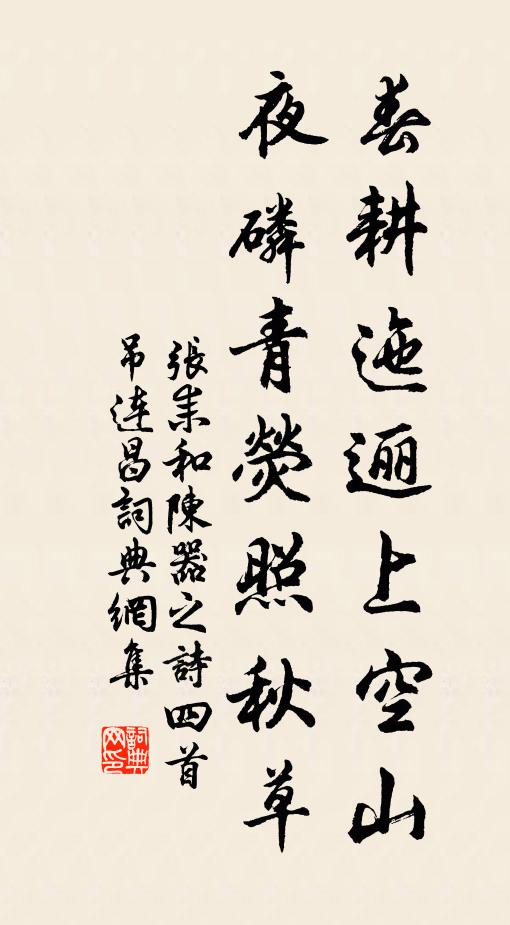 春耕迤逦上空山
夜磷青熒照秋草
張耒和陳器之詩四首
吊連昌詞典網集
詞典网印